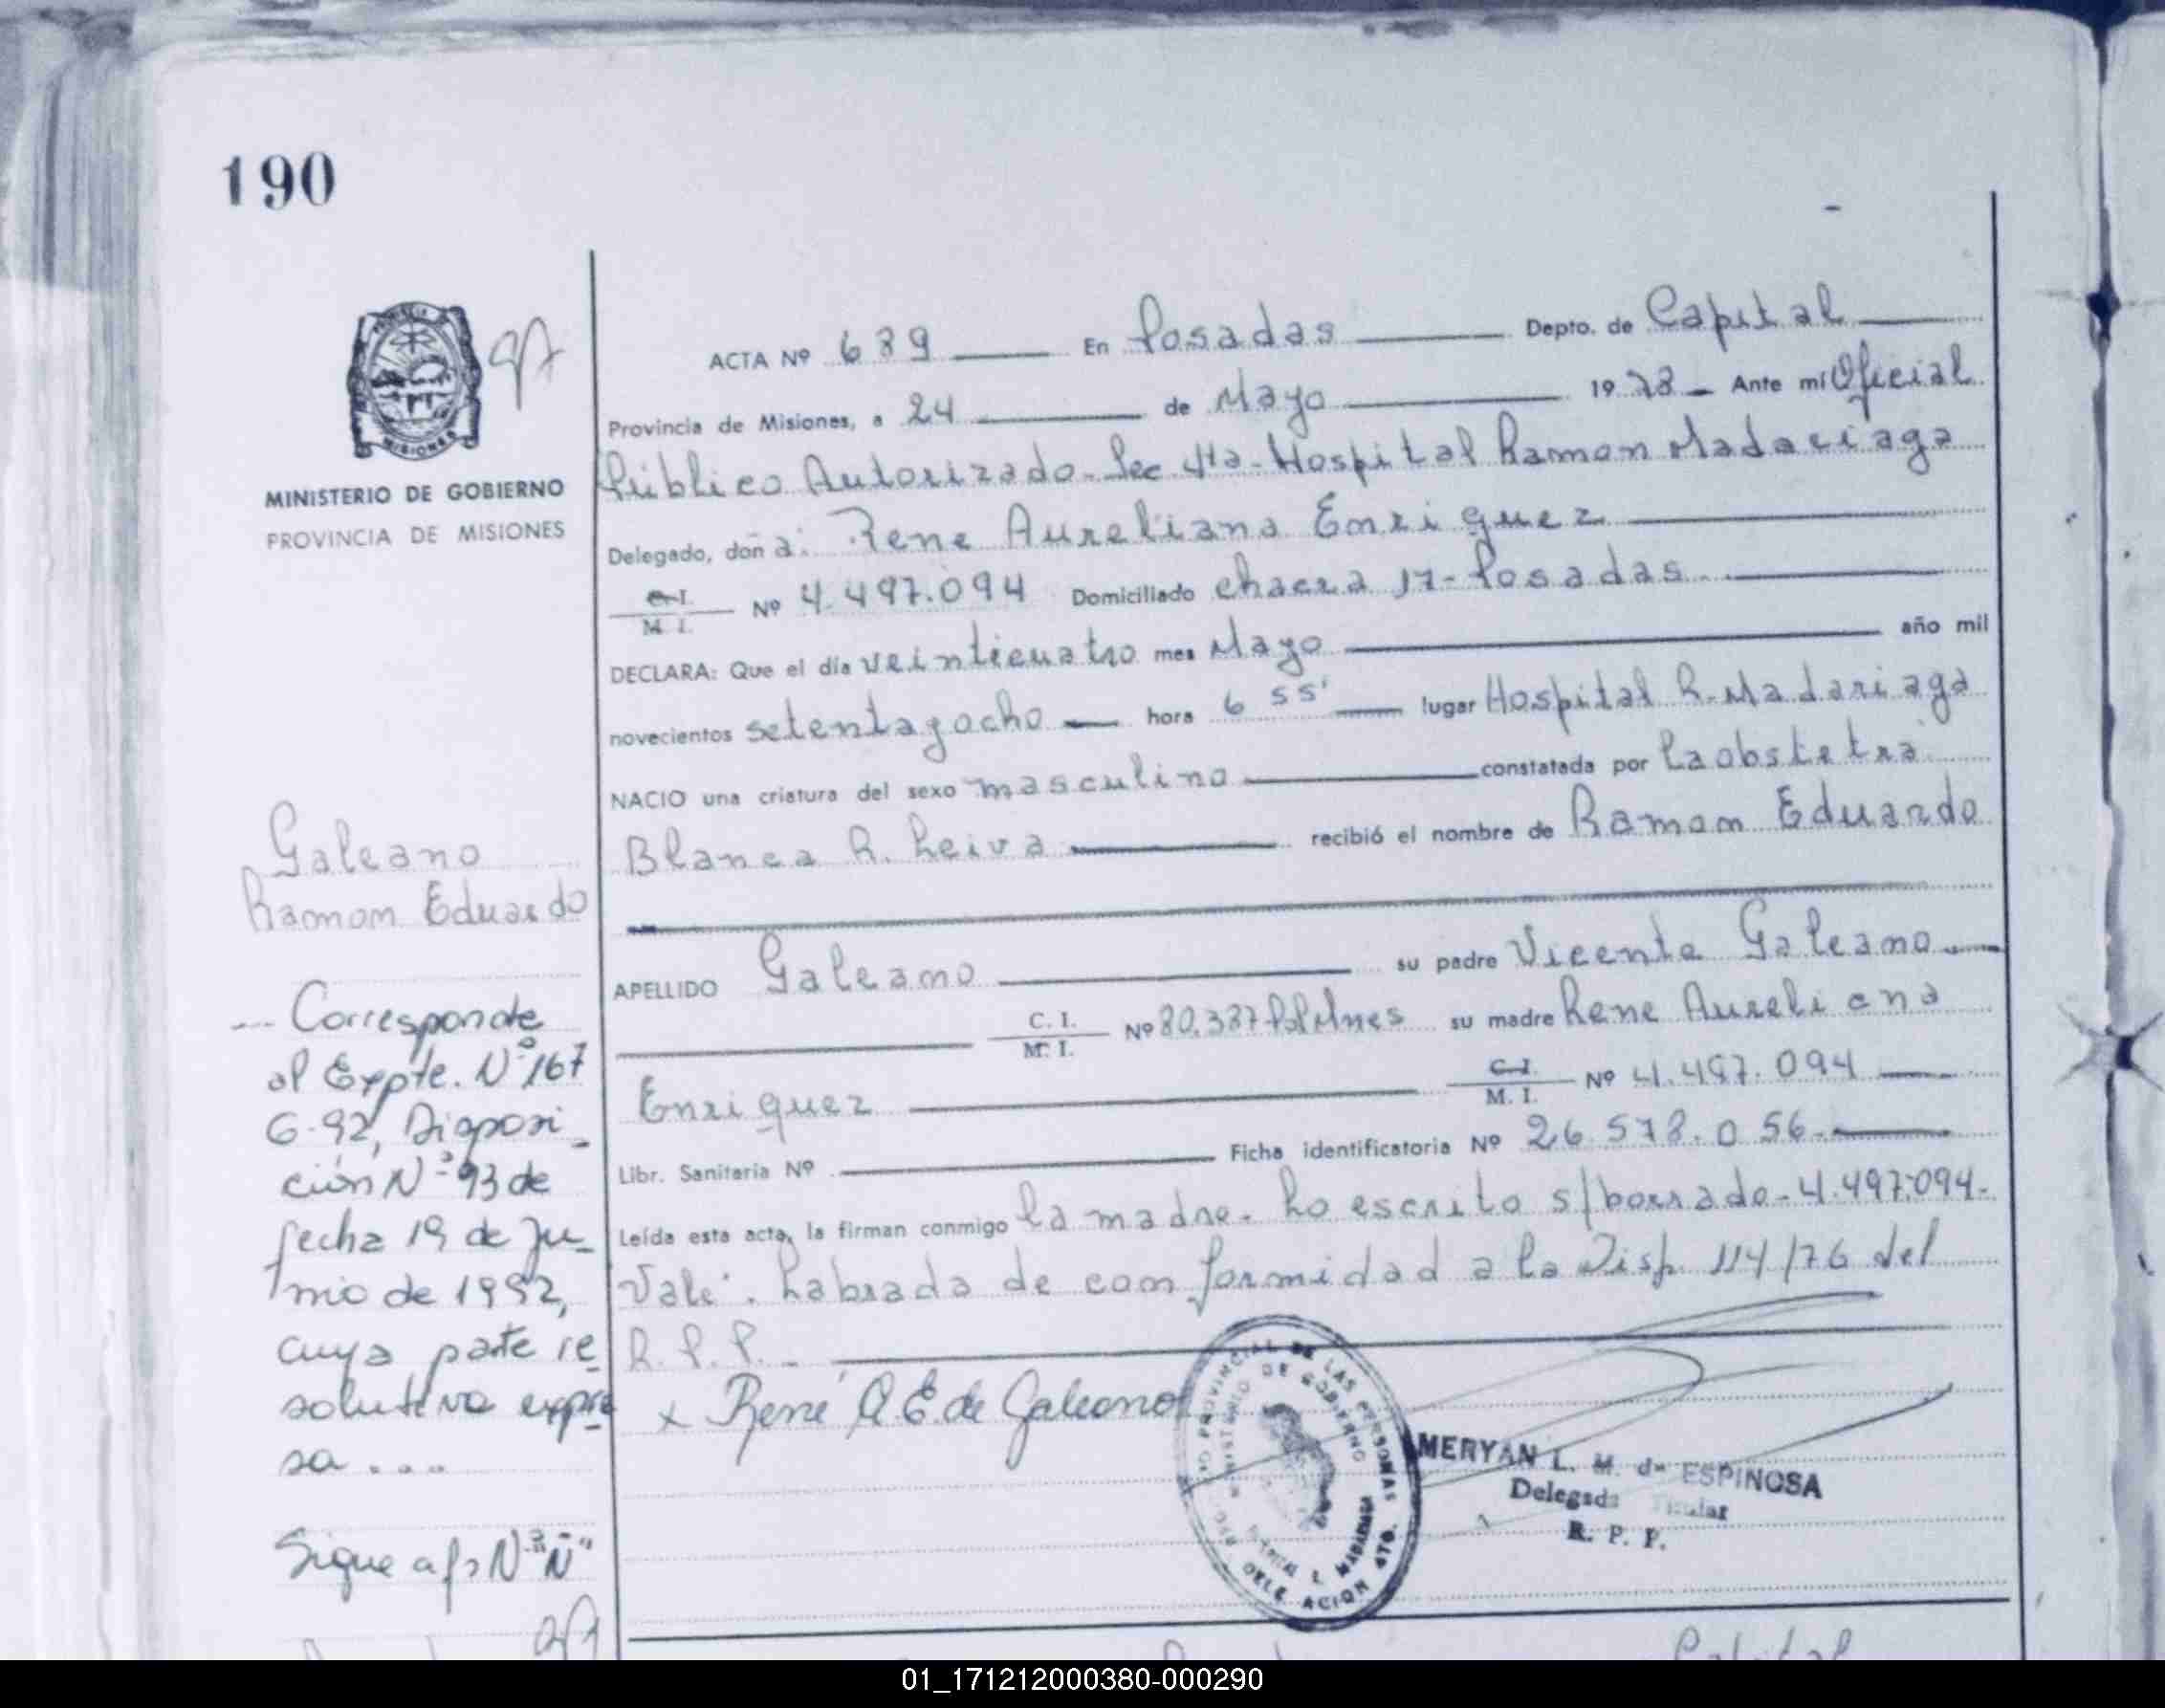 190
ACTA Nº 689 En Posadas Depto. de Capital
Provincia de Misiones, a 24 de Mayo 1978 - Ante mí Oficial
Público Autorizado - Sec 4ta - Hospital Ramon Madariaga
MINISTERIO DE GOBIERNO
PROVINCIA DE MISIONES
Delegado, don a: Rene Aureliana Enriquez
C. I. / M. I. Nº 4.497.094 Domiciliado chacra 17 - Posadas
DECLARA: Que el día veinticuatro mes Mayo año mil
novecientos setenta y ocho hora 6 55' lugar Hospital R. Madariaga
NACIO una criatura del sexo masculino constatada por la obstetra
Blanca R. Leiva recibió el nombre de Ramon Eduardo
APELLIDO Galeano su padre Vicente Galeano
C. I. / M. I. Nº 80.387 Pol Mnes su madre Rene Aureliana
Enriquez C. I. / M. I. Nº 4.497.094
Libr. Sanitaria Nº Ficha identificatoria Nº 26.578.056
Leída esta acta, la firman conmigo la madre. Lo escrito s/borrado - 4.497.094 -
Vale. Labrada de conformidad a la Disp. 114/76 del
R. P. P.
x René A. E. de Galeano
Galeano
Ramon Eduardo
-- Corresponde
al Expte. Nº 167
G-92, Disposi-
ción Nº 93 de
fecha 19 de Ju-
nio de 1992,
cuya parte re-
solutiva expre-
sa ...
Sigue a fs Nº "Ñ"
MISIONES
PROVINCIAL DE LAS PERSONAS
MINISTERIO DE GOBIERNO
DELEGACION 4TO.
MERYAN L. M. de ESPINOSA
Delegada Titular
R. P. P.
01_171212000380-000290